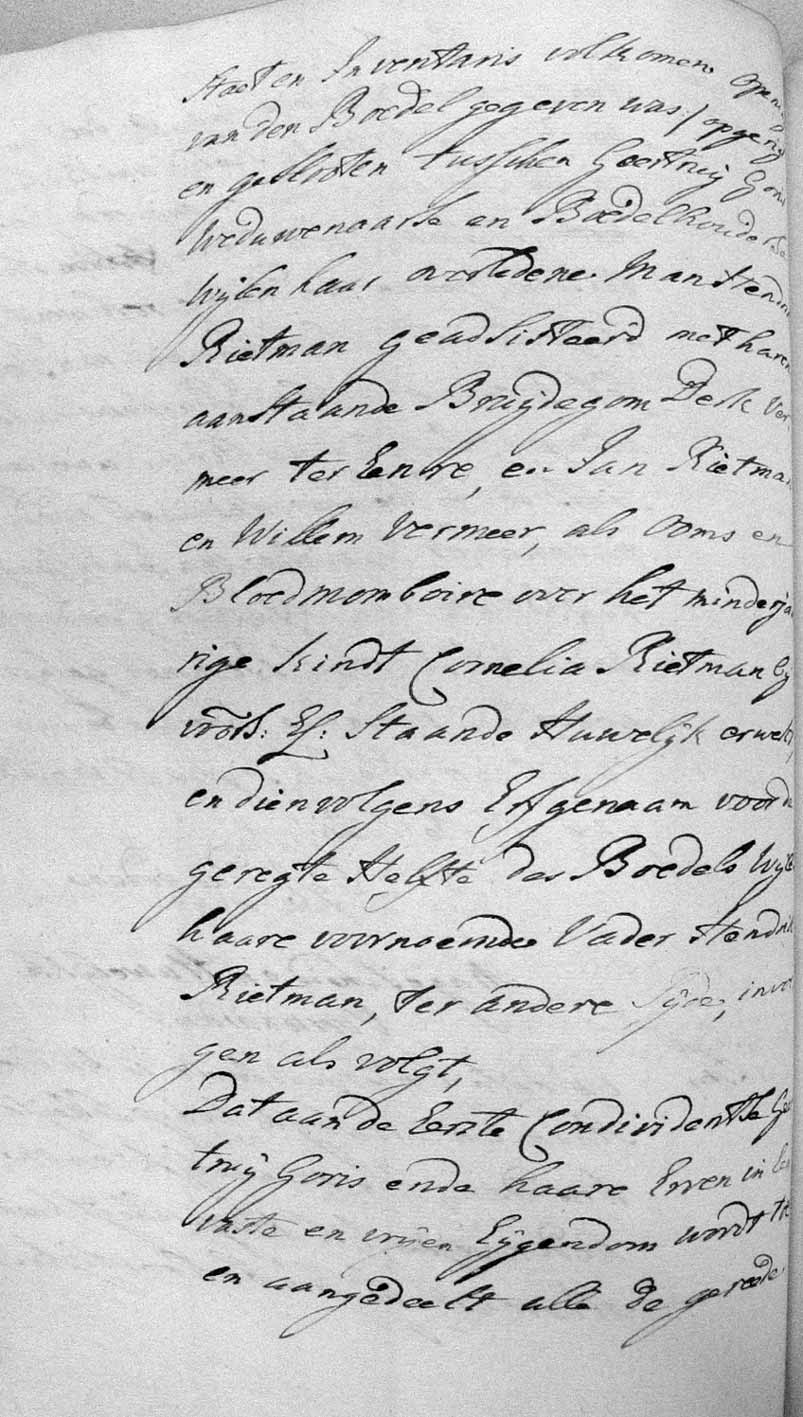 Staet en Inventaris volkomen open
van den Boedel gegeven was / opgerig
en geslooten tusschen Geertruij Gori
Weduwenaarse en Boedelhouderse
Wijlen haar overledene Man Hendri
Rietman geadsisteerd met haren
aanstaande Bruijdegom Derk Ver
meer ter Eenre, en Jan Rietman
en Willem Vermeer, als Ooms en
Bloedmomboire over het minderja
rige kindt Cornelia Rietman bij
voors: Es: Staande Huwelijk erwekt,
en dienvolgens Erfgenaam voor de
geregte Helfte des Boedels Wijle
haare voornoemde Vader Hendrik
Rietman, ter andere Sijde, invoe
gen als volgt,
Dat aan de Eerste Condividentse Ge
truij Goris ende haare Erven in
vaste en vrijen Eijgendom wordt toe
en aangedeelt alle de gereede